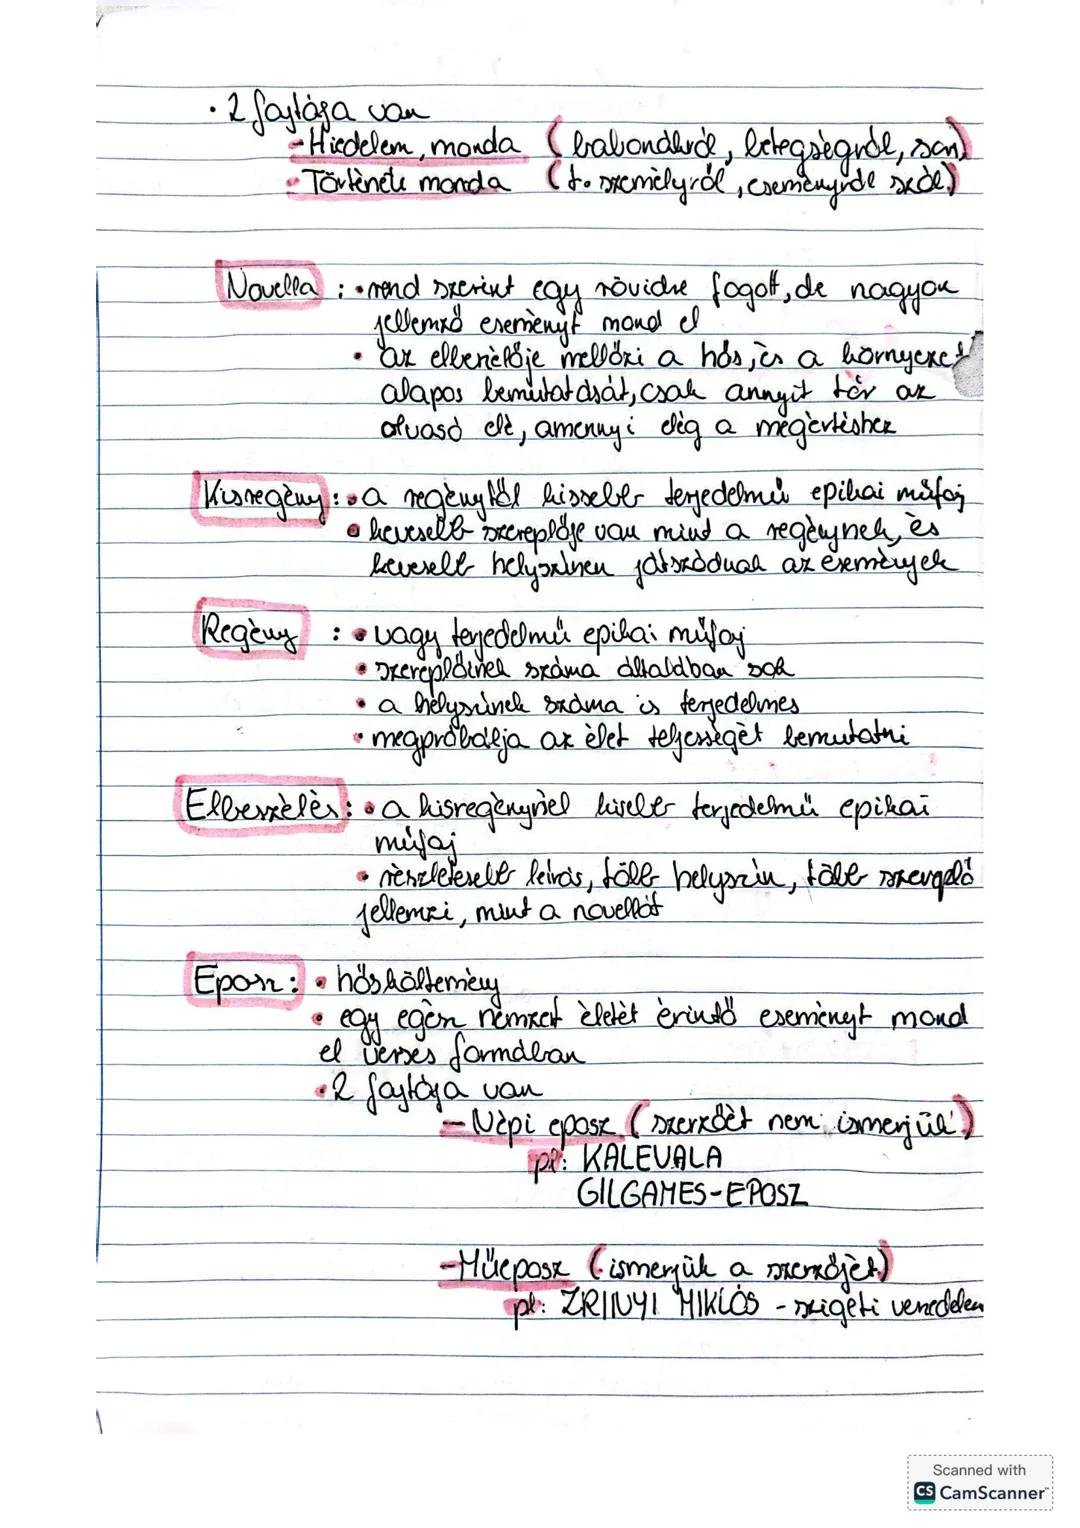 • 2 fajtája van
- Hiedelem monda (babonákról, betegségről, szól)
- Történeti monda (t. személyről, eseményről szól)
Novella : • rend szerint egy rövidre fogott, de nagyon
jellemző eseményt mond el
• az elbeszélője mellőzi a hős, és a környezet
alapos bemutatását, csak annyit tár az
olvasó elé, amennyi elég a megértéshez
Kisregény : • a regénytől kissebb terjedelmű epikai műfaj
• kevesebb szereplője van mint a regénynek, és
kevesebb helyszínen játszódnak az események
Regény : • nagy terjedelmű epikai műfaj
• szereplőinek száma általában sok
• a helyszínek száma is terjedelmes
• megpróbálja az élet teljességét bemutatni
Elbeszélés : • a kisregénynél kisebb terjedelmű epikai
műfaj
• részletesebb leírás, több helyszín, több szereplő
jellemzi, mint a novellát
Eposz : • hősköltemény
• egy egész nemzet életét érintő eseményt mond
el verses formában
• 2 fajtája van
- Népi eposz (szerzőét nem ismerjük)
pl: KALEVALA
GILGAMES-EPOSZ
- Műeposz (ismerjük a szerzőjét)
pl: ZRINYI MIKLÓS - szigeti veszedelem
Scanned with
CS CamScanner